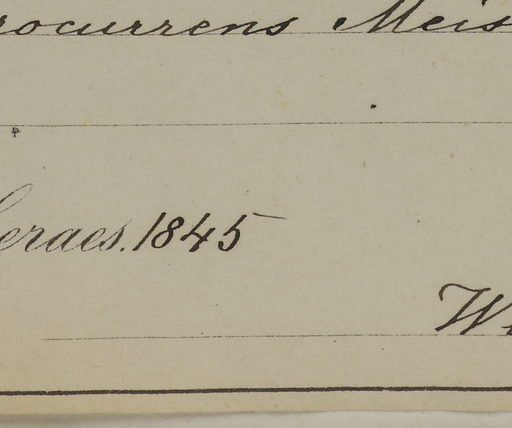 rocurrens Meis
Geraes. 1845
W